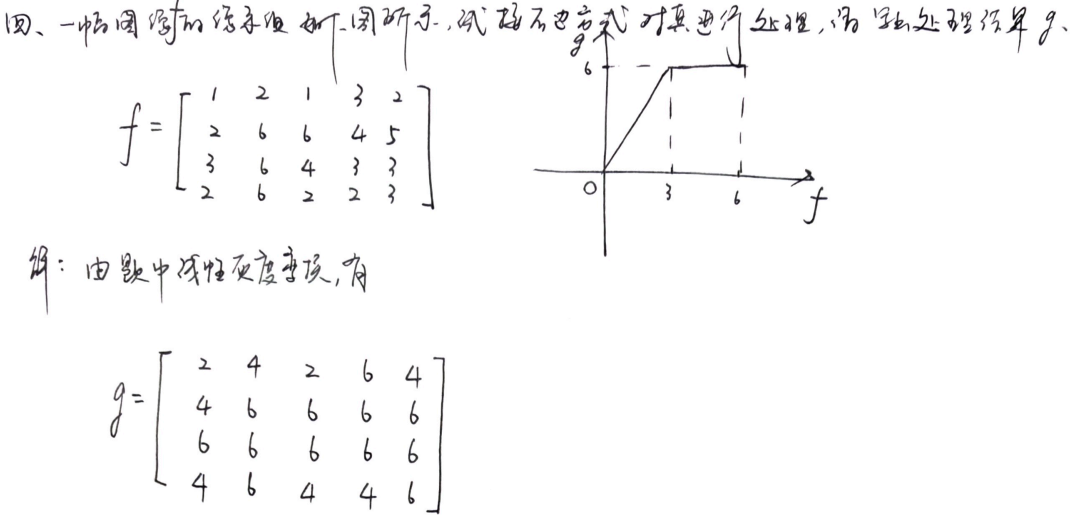 四、一幅图像的像素值如下图所示,试按右边方式对其进行处理,写出处理结果g、
f = [ 1 2 1 3 2
2 6 6 4 5
3 6 4 3 3
2 6 2 2 3 ]
g
6
O 3 6 f
解：由题中线性灰度变换,有
g = [ 2 4 2 6 4
4 6 6 6 6
6 6 6 6 6
4 6 4 4 6 ]